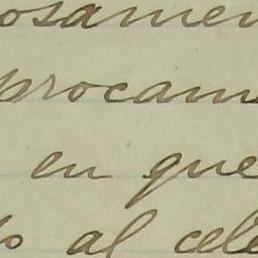 osamen
procam
en que
lo al cele